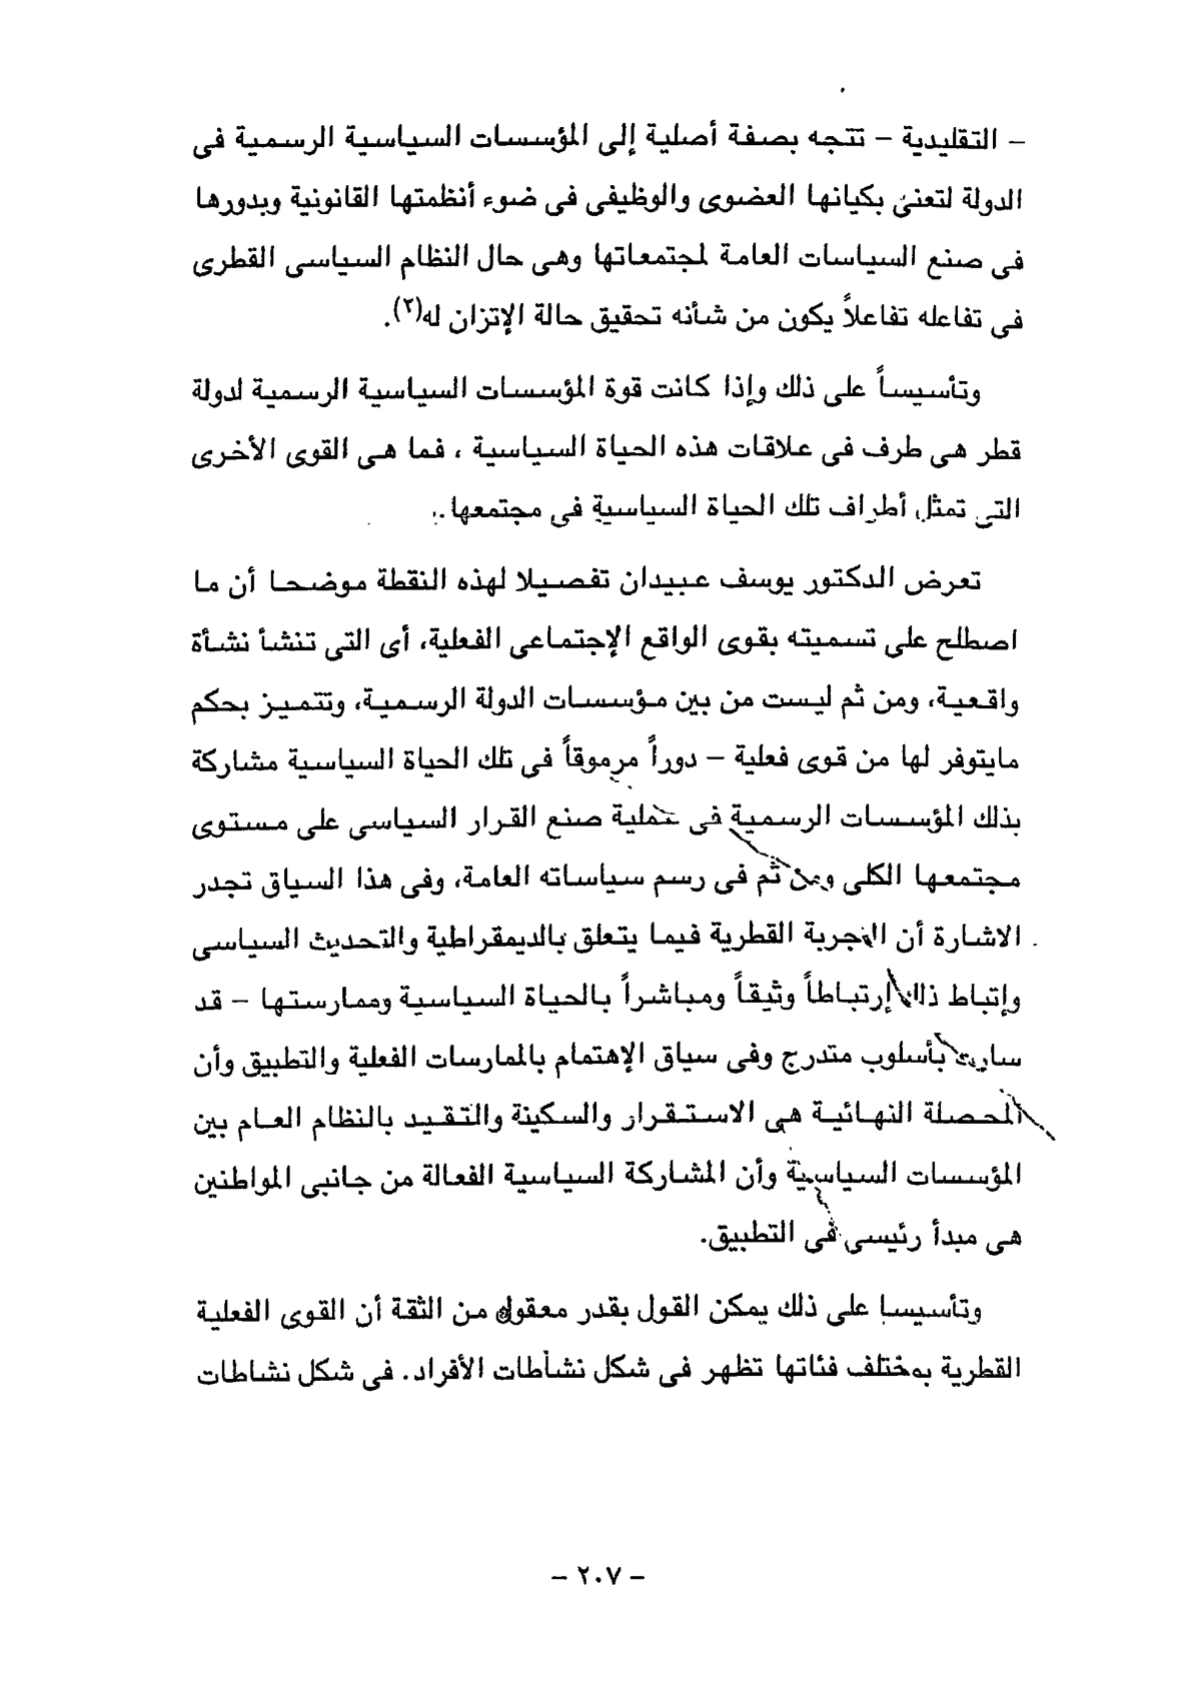 – التقليدية – تتجه بصفة أصلية إلى المؤسسات السياسية الرسمية فى
الدولة لتعنى بكيانها العضوى والوظيفى فى ضوء أنظمتها القانونية وبدورها
فى صنع السياسات العامة لمجتمعاتها وهى حال النظام السياسى القطرى
فى تفاعله تفاعلاً يكون من شأنه تحقيق حالة الإتزان له(٢).
وتأسيساً على ذلك وإذا كانت قوة المؤسسات السياسية الرسمية لدولة
قطر هى طرف فى علاقات هذه الحياة السياسية ، فما هى القوى الأخرى
التى تمثل أطراف تلك الحياة السياسية فى مجتمعها.
تعرض الدكتور يوسف عبيدان تفصيلا لهذه النقطة موضحا أن ما
اصطلح على تسميته بقوى الواقع الإجتماعى الفعلية، أى التى تنشأ نشأة
واقعية، ومن ثم ليست من بين مؤسسات الدولة الرسمية، وتتميز بحكم
مايتوفر لها من قوى فعلية – دوراً مرموقاً فى تلك الحياة السياسية مشاركة
بذلك المؤسسات الرسمية فى عملية صنع القرار السياسى على مستوى
مجتمعها الكلى ومن ثم فى رسم سياساته العامة، وفى هذا السياق تجدر
الاشارة أن التجربة القطرية فيما يتعلق بالديمقراطية والتحديث السياسى
وإتباط ذلك إرتباطاً وثيقاً ومباشراً بالحياة السياسية وممارستها – قد
سارت بأسلوب متدرج وفى سياق الإهتمام بالممارسات الفعلية والتطبيق وأن
المحصلة النهائية هى الاستقرار والسكينة والتقيد بالنظام العام بين
المؤسسات السياسية وأن المشاركة السياسية الفعالة من جانبى المواطنين
هى مبدأ رئيسى فى التطبيق.
وتأسيسا على ذلك يمكن القول بقدر معقول من الثقة أن القوى الفعلية
القطرية بمختلف فئاتها تظهر فى شكل نشاطات الأفراد. فى شكل نشاطات
– ٢٠٧ –